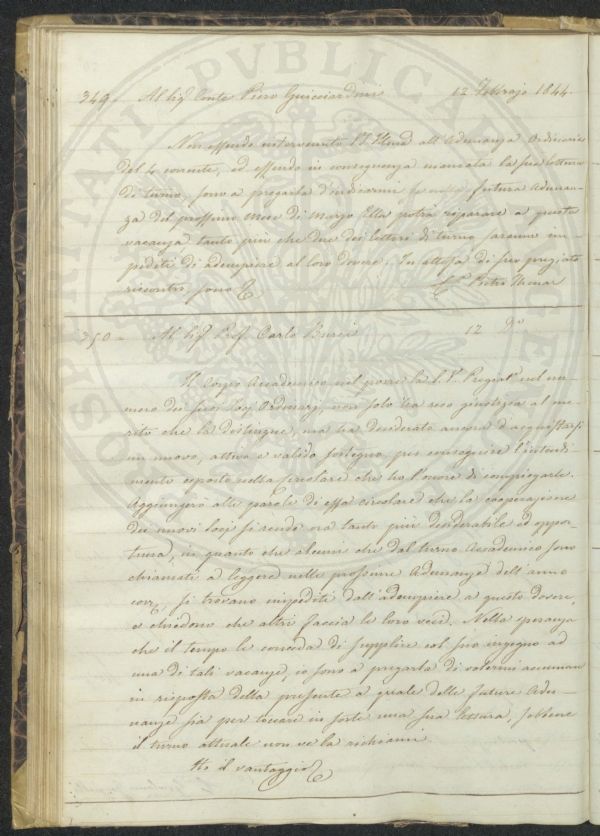 349. Al Sig.r Conte Piero Guicciardini 12 Febbrajo 1844
Non essendo intervenuto V.S. Ill.ma all'Adunanza Ordinaria
del 4 corrente, ed essendo in conseguenza mancata la sua lettura
di turno, sono a pregarla d'indicarmi se nella futura Adunan-
za del prossimo Mese di Marzo Ella potrà riparare a questa
vacanza tanto più che due dei lettori di turno saranno im-
pediti di adempiere al loro dovere. In attesa di suo pregiato
riscontro sono
Pietro Thouar
350 = Al Sig.r Prof. Carlo Burci 12 d.o
Il Corpo Accademico nel porre la S.V. Pregiat.a nel nu-
mero dei suoi Socj Ordinarj, non solo ha reso giustizia al me-
rito che la distingue, ma ha desiderato ancora d'acquistarsi
un nuovo, attivo e valido sostegno per conseguire l'intendi-
mento esposto nella circolare che ho l'onore di compiegarle.
Aggiungerò alle parole di essa circolare che la cooperazione
dei nuovi Socj si rende ora tanto più desiderabile ed oppor-
tuna, in quanto che alcuni che dal turno Accademico sono
chiamati a leggere nelle prossime Adunanze dell'anno
corr.e, si trovano impediti dall'adempiere a questo dovere,
e chiedono che altri faccia le loro veci. Nella speranza
che il tempo le conceda di supplire col suo ingegno ad
una di tali vacanze, io sono a pregarla di volermi accennare
in risposta della presente a quale delle future Adu-
nanze sia per toccare in sorte una sua lettura, sebbene
il turno attuale non ve la richiami.
Ho il vantaggio
PVBLICAE
PROSPERITATI